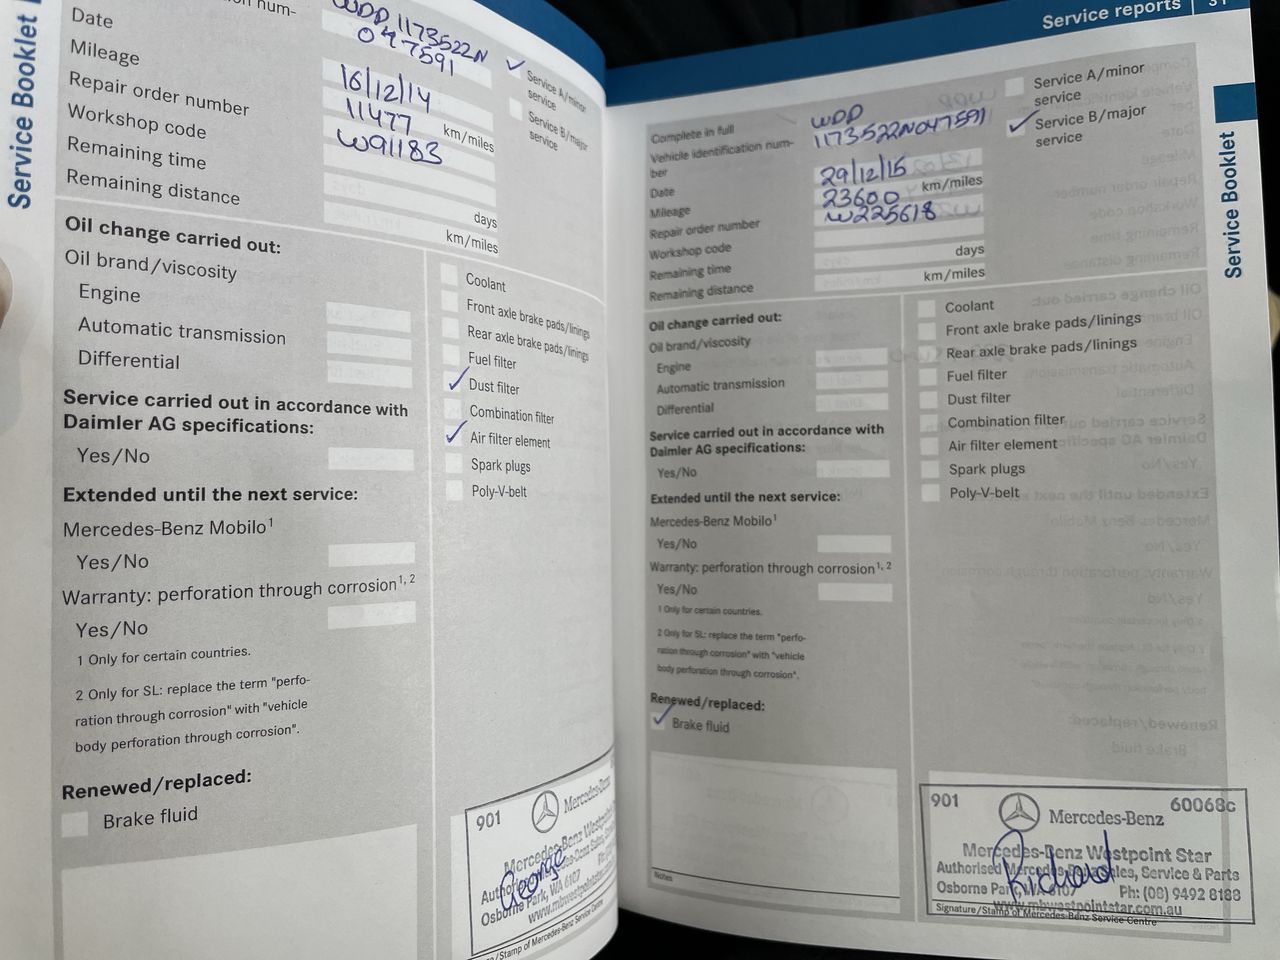 Service Booklet
Date
Mileage
Repair order number
Workshop code
Remaining time
Remaining distance
WDD 1173522N
047591
16/12/14
11477 km/miles
W91183
days
km/miles
Service A/minor
service
Service B/major
service
Oil change carried out:
Oil brand/viscosity
Engine
Automatic transmission
Differential
Service carried out in accordance with
Daimler AG specifications:
Yes/No
Extended until the next service:
Mercedes-Benz Mobilo1
Yes/No
Warranty: perforation through corrosion1, 2
Yes/No
1 Only for certain countries.
2 Only for SL: replace the term "perfo-
ration through corrosion" with "vehicle
body perforation through corrosion".
Renewed/replaced:
Brake fluid
Coolant
Front axle brake pads/linings
Rear axle brake pads/linings
Fuel filter
Dust filter
Combination filter
Air filter element
Spark plugs
Poly-V-belt
901
Mercedes-Benz
Mercedes-Benz Westpoint
George
Osborne Park, WA 6107
www.mbwestpointstar
/Stamp of Mercedes-Benz Service Centre
Service reports
31
Service Booklet
Complete in full
Vehicle identification num-
ber
Date
Mileage
Repair order number
Workshop code
Remaining time
Remaining distance
WDD
1173522N047591
29/12/15
23600 km/miles
W225618
days
km/miles
Service A/minor
service
Service B/major
service
Oil change carried out:
Oil brand/viscosity
Engine
Automatic transmission
Differential
Service carried out in accordance with
Daimler AG specifications:
Yes/No
Extended until the next service:
Mercedes-Benz Mobilo1
Yes/No
Warranty: perforation through corrosion1, 2
Yes/No
1 Only for certain countries.
2 Only for SL: replace the term "perfo-
ration through corrosion" with "vehicle
body perforation through corrosion".
Renewed/replaced:
Brake fluid
Notes
Coolant
Front axle brake pads/linings
Rear axle brake pads/linings
Fuel filter
Dust filter
Combination filter
Air filter element
Spark plugs
Poly-V-belt
901
60068c
Mercedes-Benz
Mercedes-Benz Westpoint Star
Authorised Mercedes-Benz Sales, Service & Parts
Richard
Osborne Park, WA 6107 Ph: (08) 9492 8188
www.mbwestpointstar.com.au
Signature/Stamp of Mercedes-Benz Service Centre